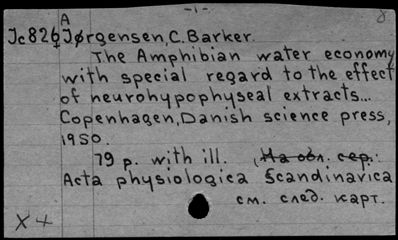 -1-
8
A
Jc826 Jørgensen, C. Barker.
The Amphibian water economy
with special regard to the effect
of neurohypophyseal extracts...
Copenhagen, Danish science press,
1950.
79 p. with ill. (На обл. сер.:
Acta physiologica Scandinavica
см. след. карт.
X4